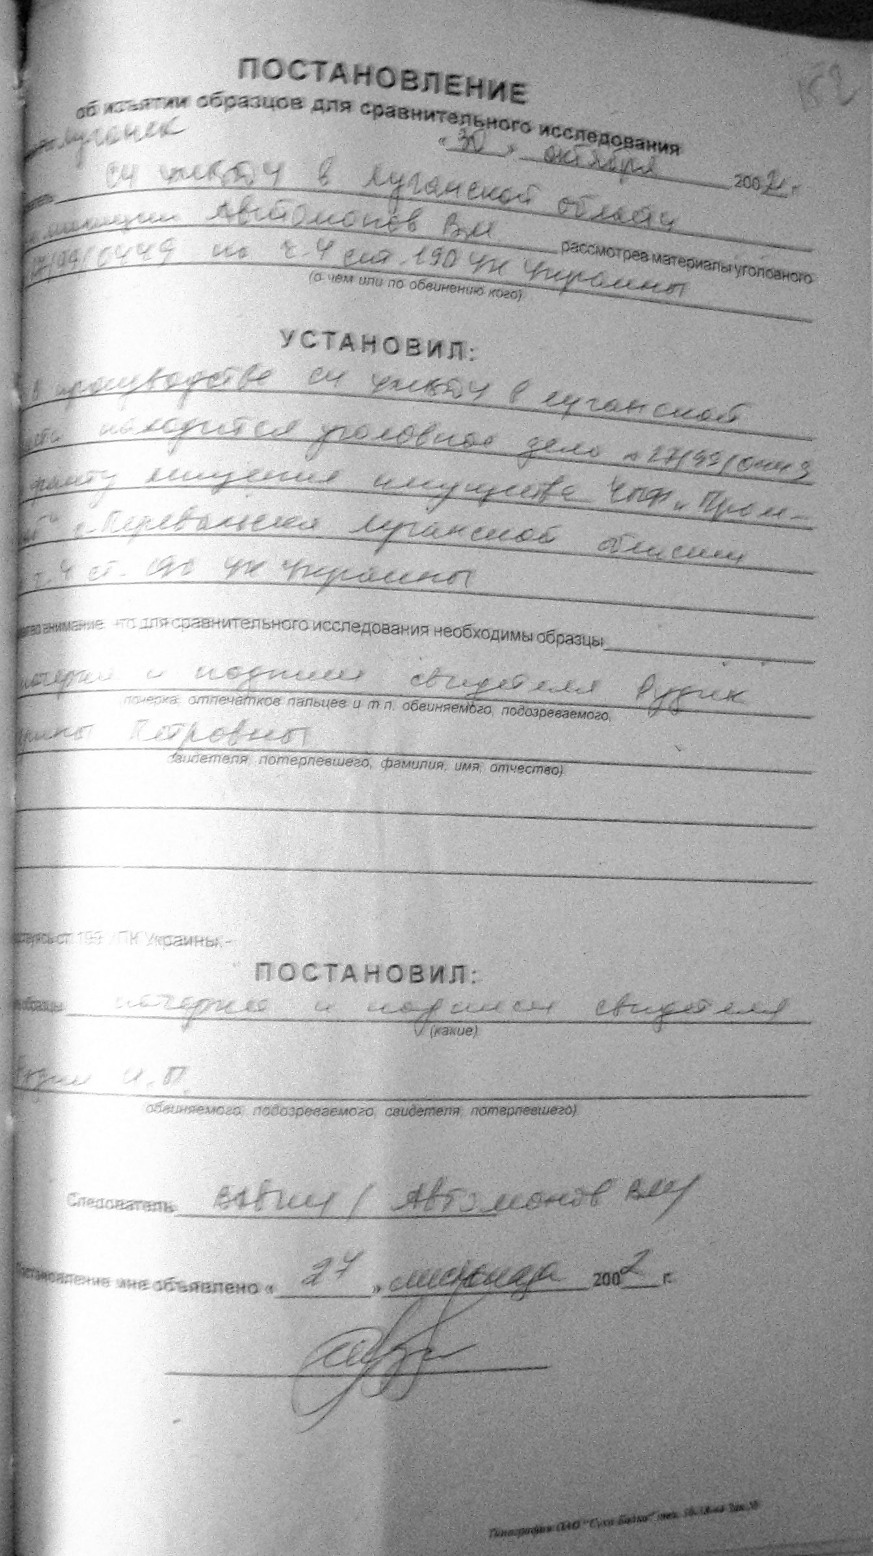 152
ПОСТАНОВЛЕНИЕ
об изъятии образцов для сравнительного исследования
Луганск « 30 » октября 2002 г.
СЧ в Луганской области
милиции Автомонов ВМ рассмотрев материалы уголовного
по ч. 4 ст. 190 УК Украины
(о чем или по обвинению кого)
УСТАНОВИЛ:
в производстве СЧ в Луганской
находится уголовное дело
имущества ЧПФ „Пром-
г. Перевальска Луганской области
ч. 4 ст. 190 УК Украины
внимание, что для сравнительного исследования необходимы образцы
и подписи свидетеля Рудик
почерка, отпечатков пальцев и т.п. обвиняемого, подозреваемого,
Петровны
свидетеля, потерпевшего, фамилия, имя, отчество)
ст. 199 УПК Украины,-
ПОСТАНОВИЛ:
образцы почерка и подписи свидетеля
(какие)
И.П.
обвиняемого, подозреваемого, свидетеля, потерпевшего)
Следователь / Автомонов ВМ/
Постановление мне объявлено « 27 » листопада 2002 г.